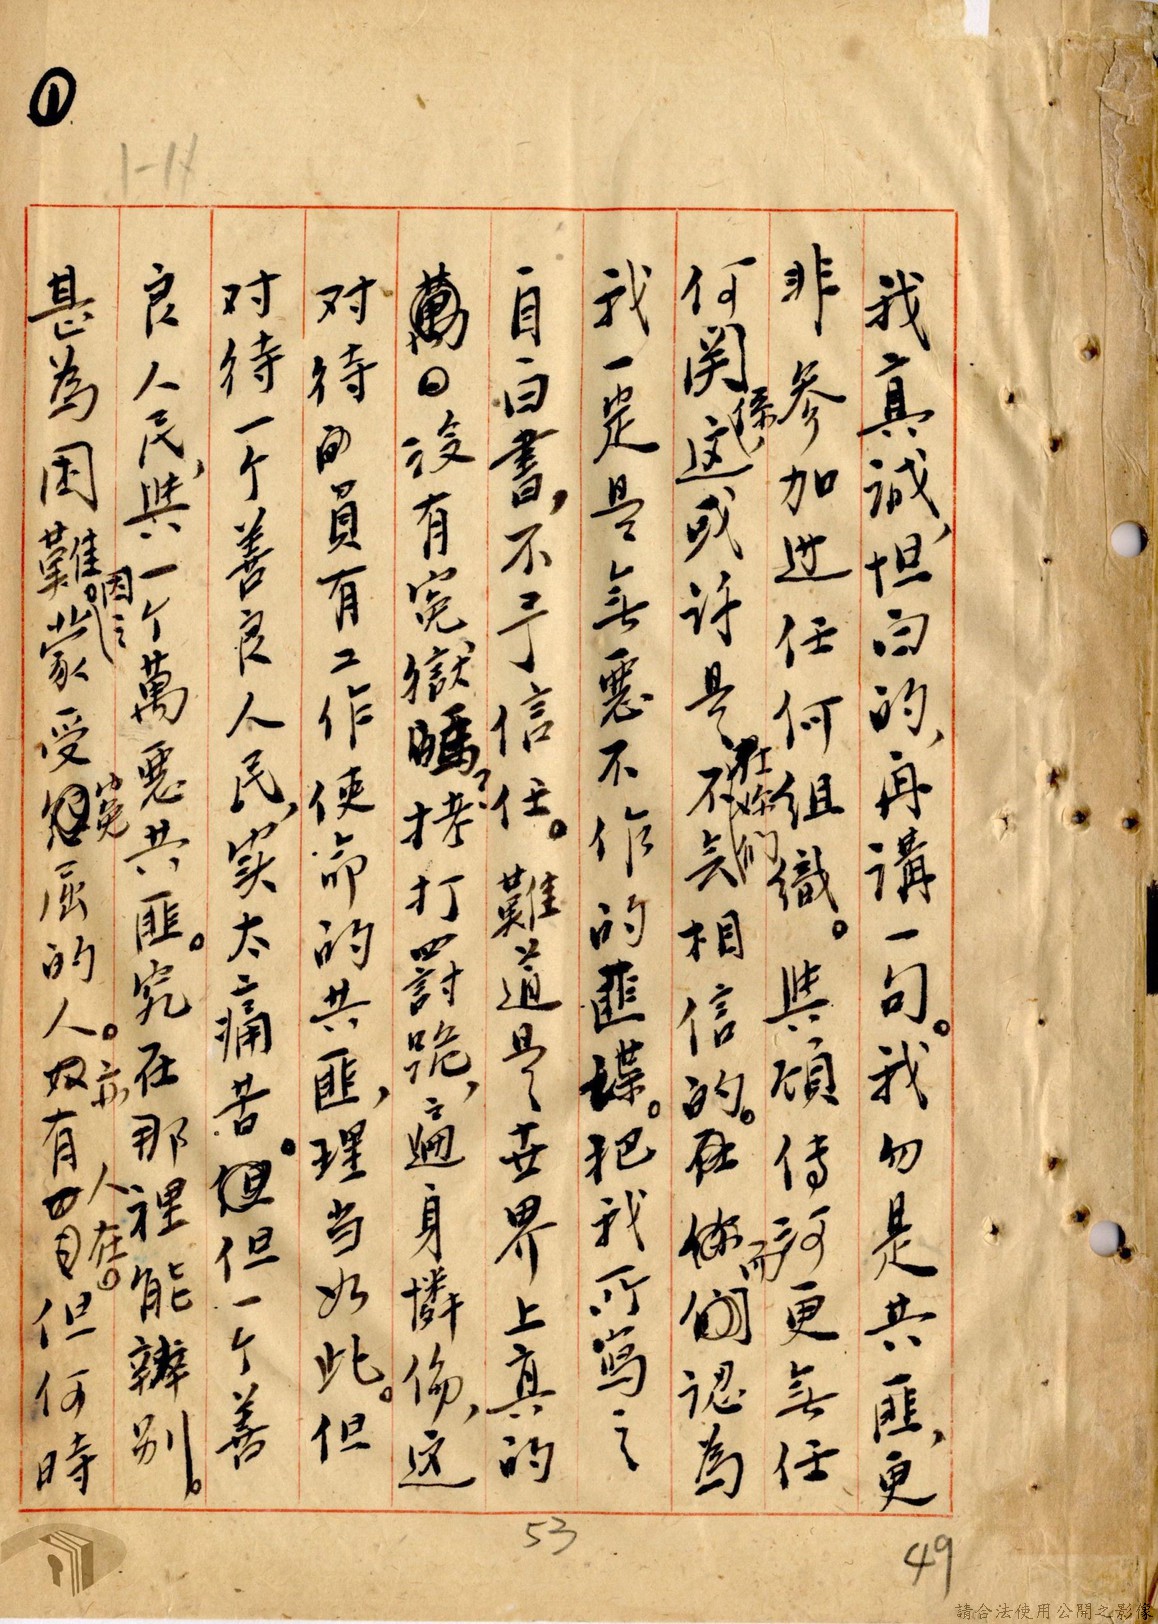 ①
1-14
我真誠,坦白的,再講一句。我勿是共匪,更
非參加进任何組織。與頋傳河更無任
何関係这或许是在你們不会相信的。在你而們認為
我一定是是無惡不作的匪諜。把我所寫之
一自白書,不予信任。難道是世界上真的
萬日没有冤獄嗎?拷打罰跪,遍身憐傷,这
对待的負有工作使命的共匪,理当如此。但
对待一个善良人民,实太痛苦。但一个善
良人民,與一个萬惡共匪。究在那裡能辨别。
甚為困難。因之蒙受冤屈的人。亦有人在。但何時
53
49
請合法使用公開之影像